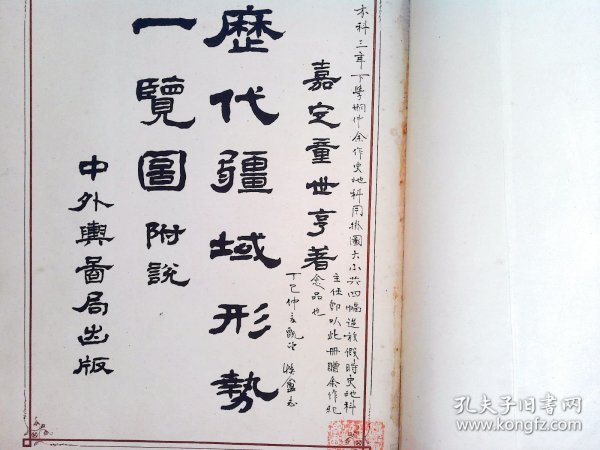 本科三年下學期仲余作史地科用掛圖大小共四幅迨放假時史地科
主任即以此冊贈余作紀
念品也
丁巳仲
嘉定童世亨著
歷代疆域形勢
一覽圖附說
中外輿圖局出版
孔夫子旧书网
www.kongfz.com